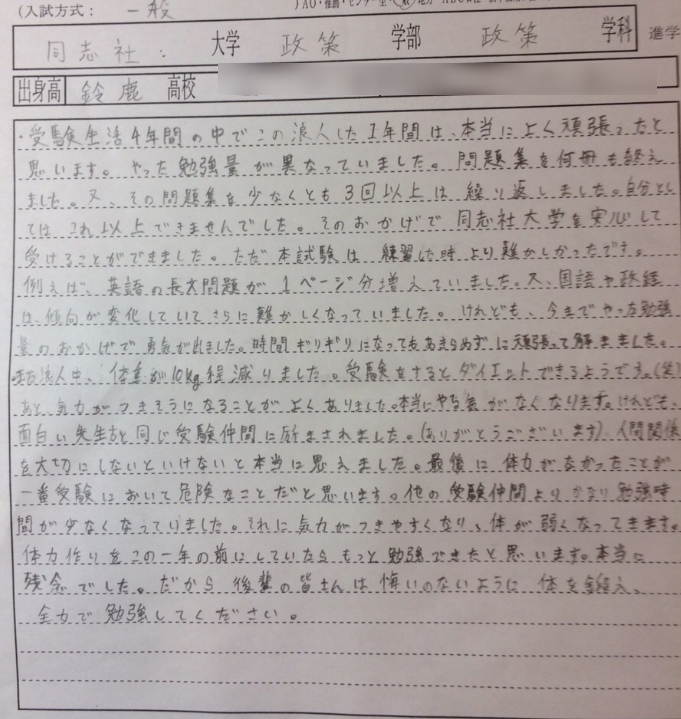 (入試方式： 一般
同志社： 大学 政策 学部 政策 学科 進学
出身高 鈴鹿 高校
・受験生活4年間の中でこの浪人した1年間は、本当によく頑張ったと
思います。やった勉強量が異なっていました。問題集を何冊も終え
ました。又、その問題集を少なくとも3回以上は繰り返しました。自分とし
てはこれ以上できませんでした。そのおかげで同志社大学を安心して
受けることができました。ただ本試験は練習した時より難かしかったです。
例えば、英語の長文問題が1ページ分増えていました。又、国語や政経
は、傾向が変化していてさらに難かしくなっていました。けれども、今までやった勉強
量のおかげで勇気が出ました。時間ギリギリになってもあきらめずに頑張って解きました。
浪人中、体重が10kg程減りました。受験をするとダイエットできるようです。(笑)
あと、気力がつきそうになることがよくありました。本当にやる気がなくなります。けれども、
面白い先生方と同じ受験仲間に励まされました。(ありがとうございます) 人間関係
を大切にしないといけないと本当に思えました。最後に体力がなかったことが
一番受験において危険なことだと思います。他の受験仲間よりかなり勉強時
間が少なくなっていました。それに気力がつきやすくなり、体が弱くなってきます。
体力作りをこの一年の前にしていたらもっと勉強できたと思います。本当に
残念でした。だから後輩の皆さんは悔いのないように体を鍛え、
全力で勉強してください。